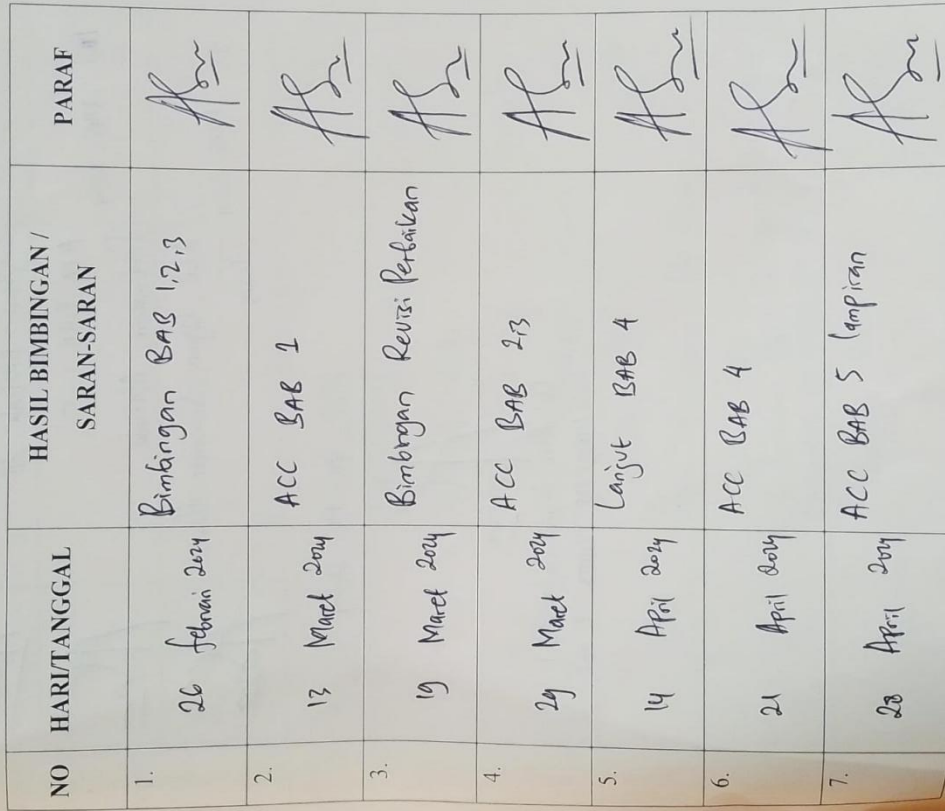 NO HARI/TANGGAL HASIL BIMBINGAN / PARAF
SARAN-SARAN
1. 26 februari 2024 Bimbingan BAB 1,2,3
2. 13 Maret 2024 ACC BAB 1
3. 19 Maret 2024 Bimbingan Revisi Perbaikan
4. 29 Maret 2024 ACC BAB 2,3
5. 14 April 2024 Lanjut BAB 4
6. 21 April 2024 ACC BAB 4
7. 28 April 2024 ACC BAB 5 lampiran